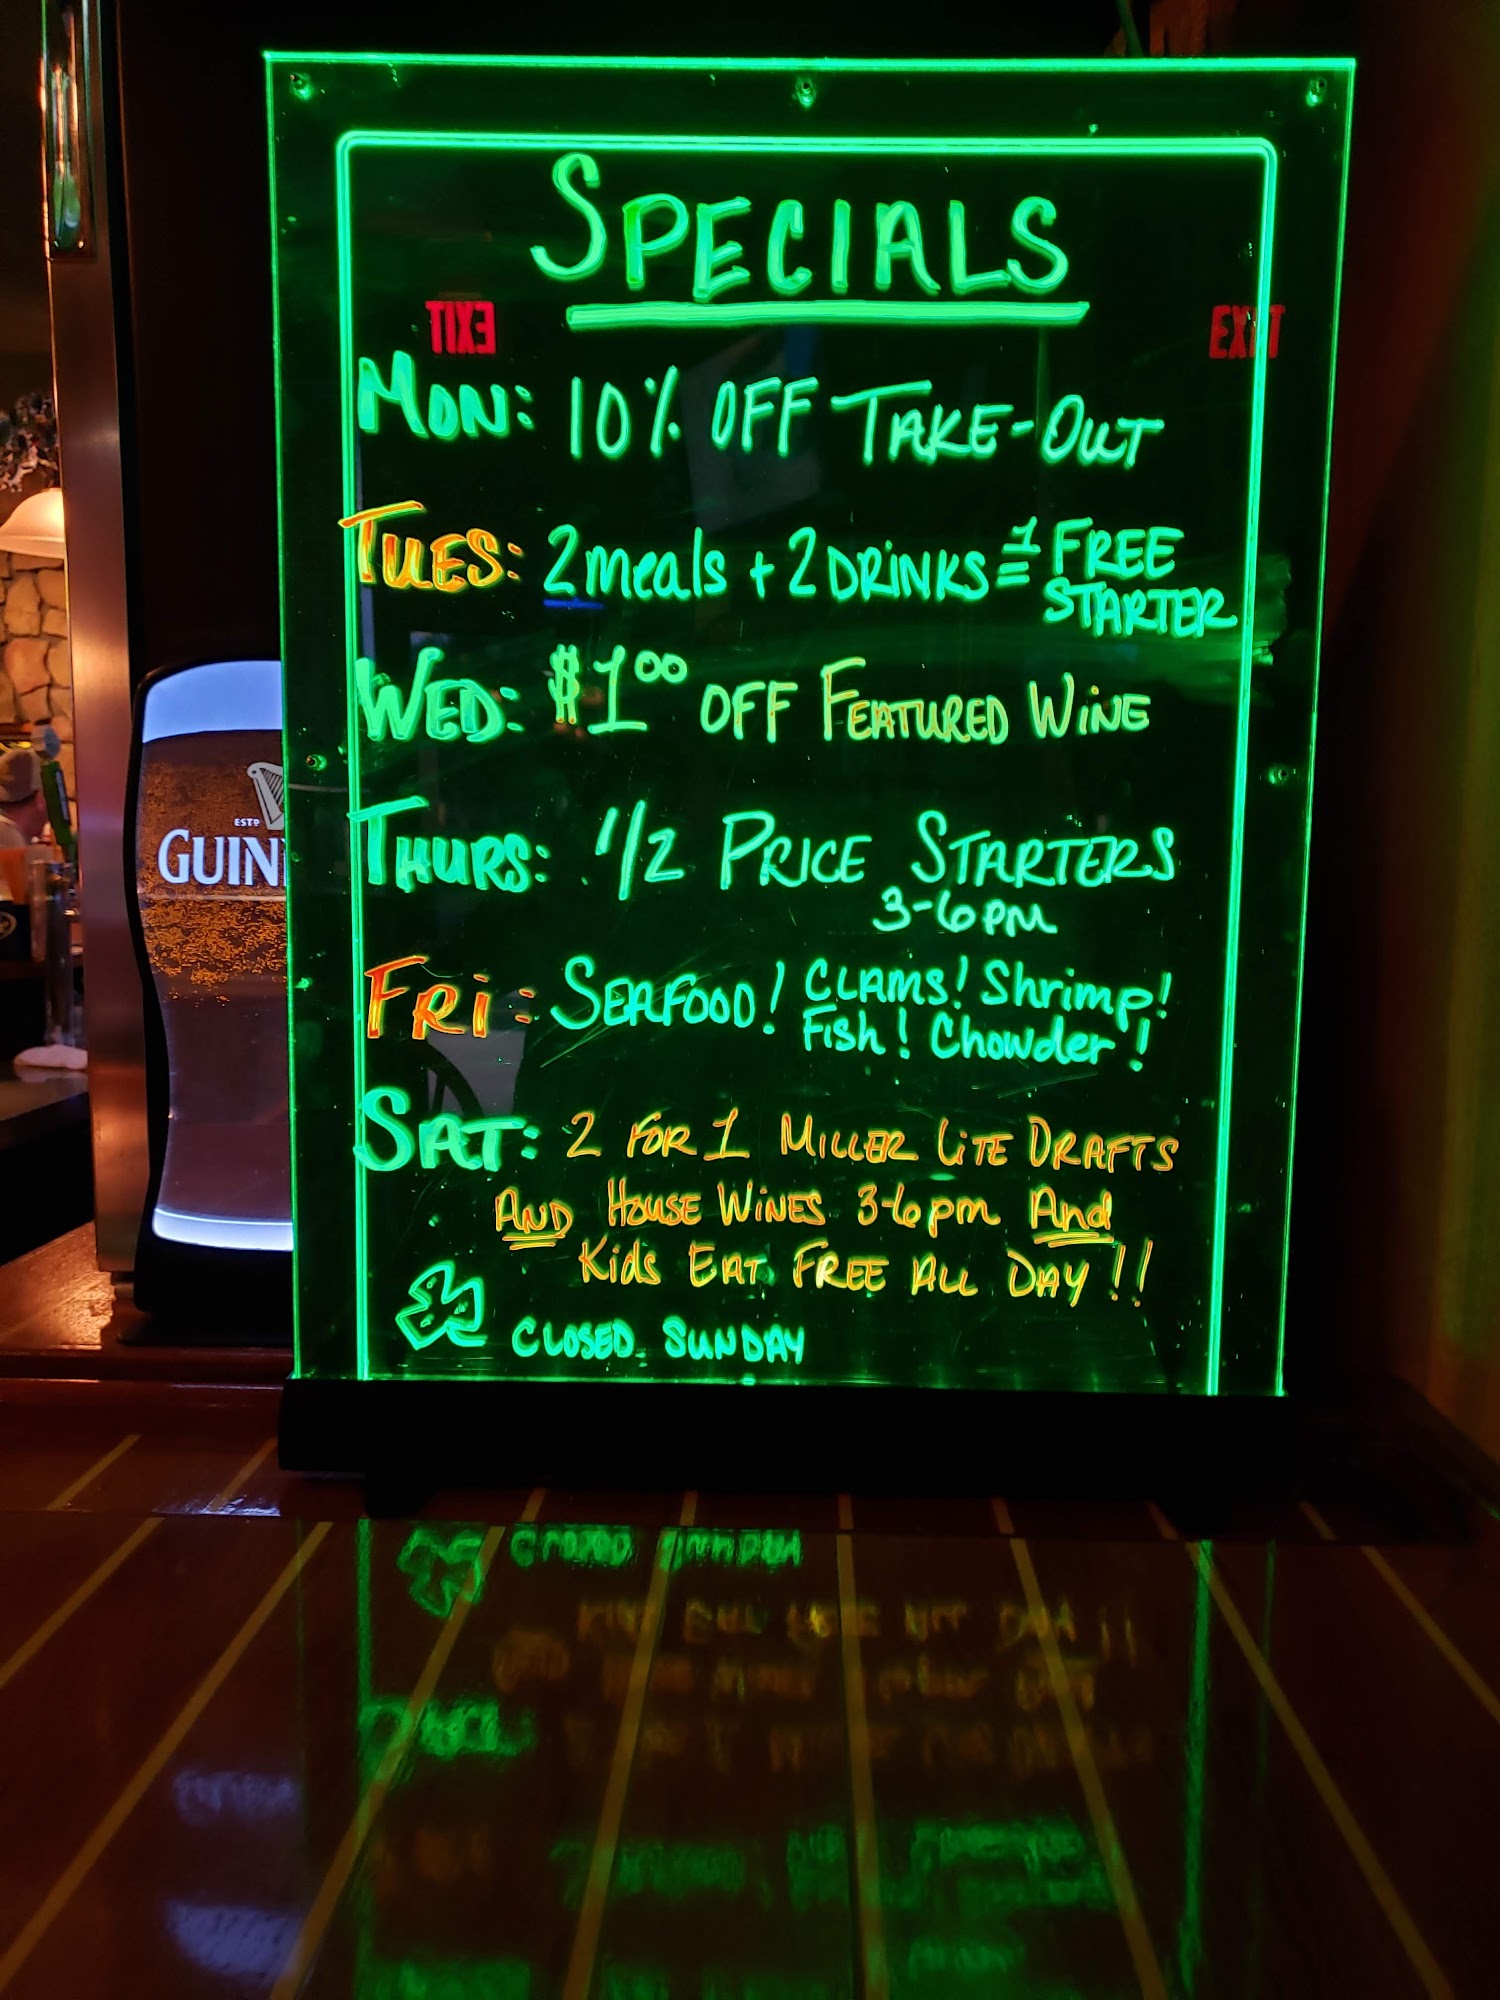 SPECIALS
EXIT EXIT
MON: 10% OFF TAKE-OUT
TUES: 2 meals + 2 DRINKS = 1 FREE
STARTER
WED: $1.00 OFF FEATURED WINE
THURS: 1/2 PRICE STARTERS
3-6PM
FRi: SEAFOOD! CLAMS! Shrimp!
Fish! Chowder!
SAT: 2 FOR 1 MILLER LiTE DRAFTS
AND HOUSE WiNES 3-6pm And
Kids EAT FREE ALL DAY!!
CLOSED SUNDAY
ESTD
GUIN